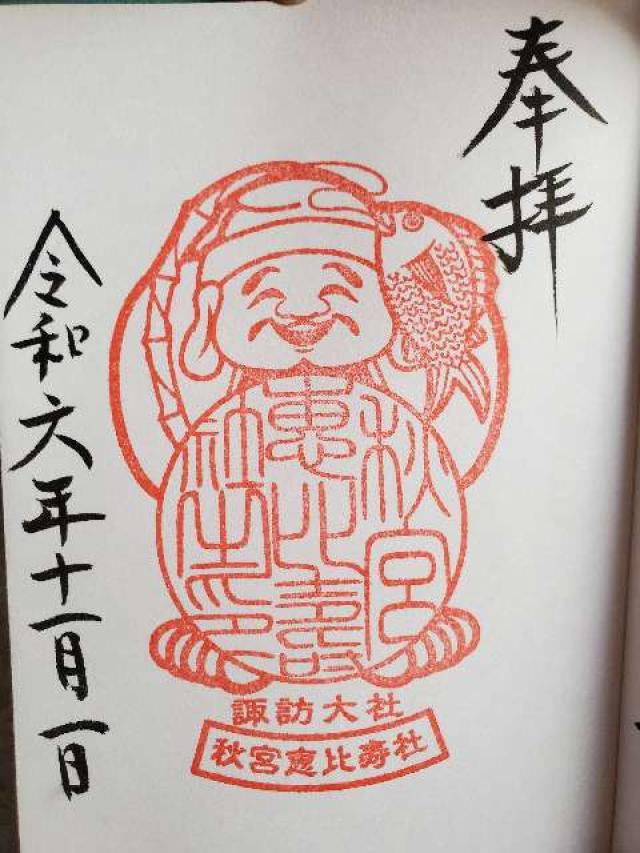 奉拝
秋宮
恵比壽
社之印
諏訪大社
秋宮恵比寿社
令和六年十一月一日